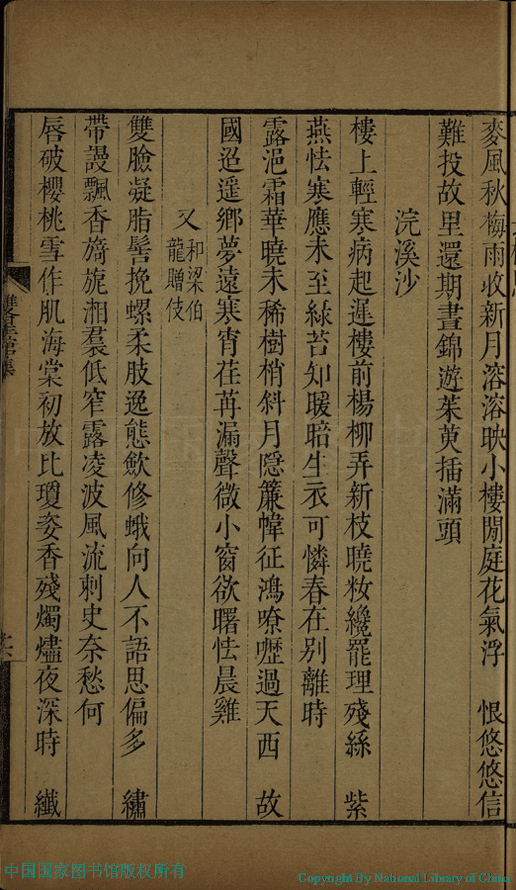 麥風秋梅雨收新月溶溶映小樓閒庭花氣浮　恨悠悠信
難投故里還期晝錦遊茱萸插滿頭
浣溪沙
樓上輕寒病起遲樓前楊柳弄新枝曉妝纔罷理殘絲　紫
燕怯寒應未至綠苔知暖暗生衣可憐春在別離時
露浥霜華曉未稀樹梢斜月隱簾幃征鴻嘹嚦過天西　故
國迢遥鄉夢遠寒宵荏苒漏聲微小窗欲曙怯晨雞
又和梁伯龍贈伎
雙臉凝脂髻挽螺柔肢逸態斂修蛾向人不語思偏多　繡
帶謾飄香旖旎湘羣低窄露凌波風流刺史奈愁何
唇破櫻桃雪作肌海棠初放比瓊姿香殘燭燼夜深時　纖
中国国家图书馆版权所有
Copyright By National Library of China